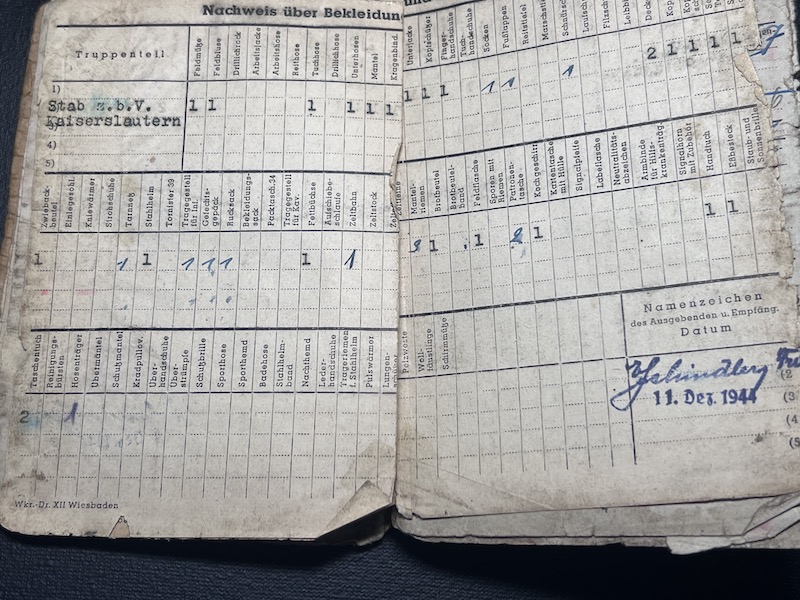 Nachweis über Bekleidun
Truppenteil
Feldmütze
Feldbluse
Drillichrock
Arbeitsjacke
Arbeitshose
Reithose
Tuchhose
Drillichhose
Unterhosen
Mantel
Kragenbind.
Unterjacke
Kopfschützer
Finger-
handschuhe
Tuch-
handschuhe
Socken
Fußlappen
Reitstiefel
Marschstie
Schnürs
Laufsch
1)
Stab z.b.V. 1 1 1 1 1 1 1 1 1 1 1 1 2 1 1 1 1
Kaiserslautern
3)
4)
5)
Zwieback-
beutel
Einlegesohl.
Kniewärmer
Strohschuhe
Tarnnetz
Stahlhelm
Tornister 39
Tragegestell
für Inf.
Gefechts-
gepäck
Rucksack
Bekleidungs-
sack
Packtasch. 34
Tragegestell
für Kav.
Fettbüchse
Aufschiebe-
schlaufe
Zeltbahn
Zeltstock
Mantel-
riemen
Brotbeutel
Brotbeutel-
band
Feldflasche
Sporen mit
Riemen
Patronen-
tasche
Kochgeschirr
Kartentasche
mit Hülle
Signalpfeife
Labeflasche
Neutralitäts-
abzeichen
Armbinde
für Hilfs-
krankenträg.
Signalhorn
mit Zubehör
Handtuch
Eßbesteck
Staub- und
Sonnenbrille
1 1 1 1 1 1 1 1 2 1 1 2 1 1 1
Taschentuch
Reinigungs-
bürsten
Hosenträger
Übermantel
Schutzmantel
Kradpullov.
Über-
handschuhe
Über-
strümpfe
Schutzbrille
Sporthose
Sporthemd
Badehose
Stahlhelm-
band
Nachthemd
Leder-
handschuhe
Trageriemen
f. Stahlhelm
Pulswärmer
Lungen-
Pelzweste
Woll-
fäustlinge
Schirmmütze
2 1
Namenzeichen
des Ausgebenden u. Empfäng.
Datum
11. Dez. 1944
(2
(3
(4
(5
Wkr.-Dr. XII Wiesbaden